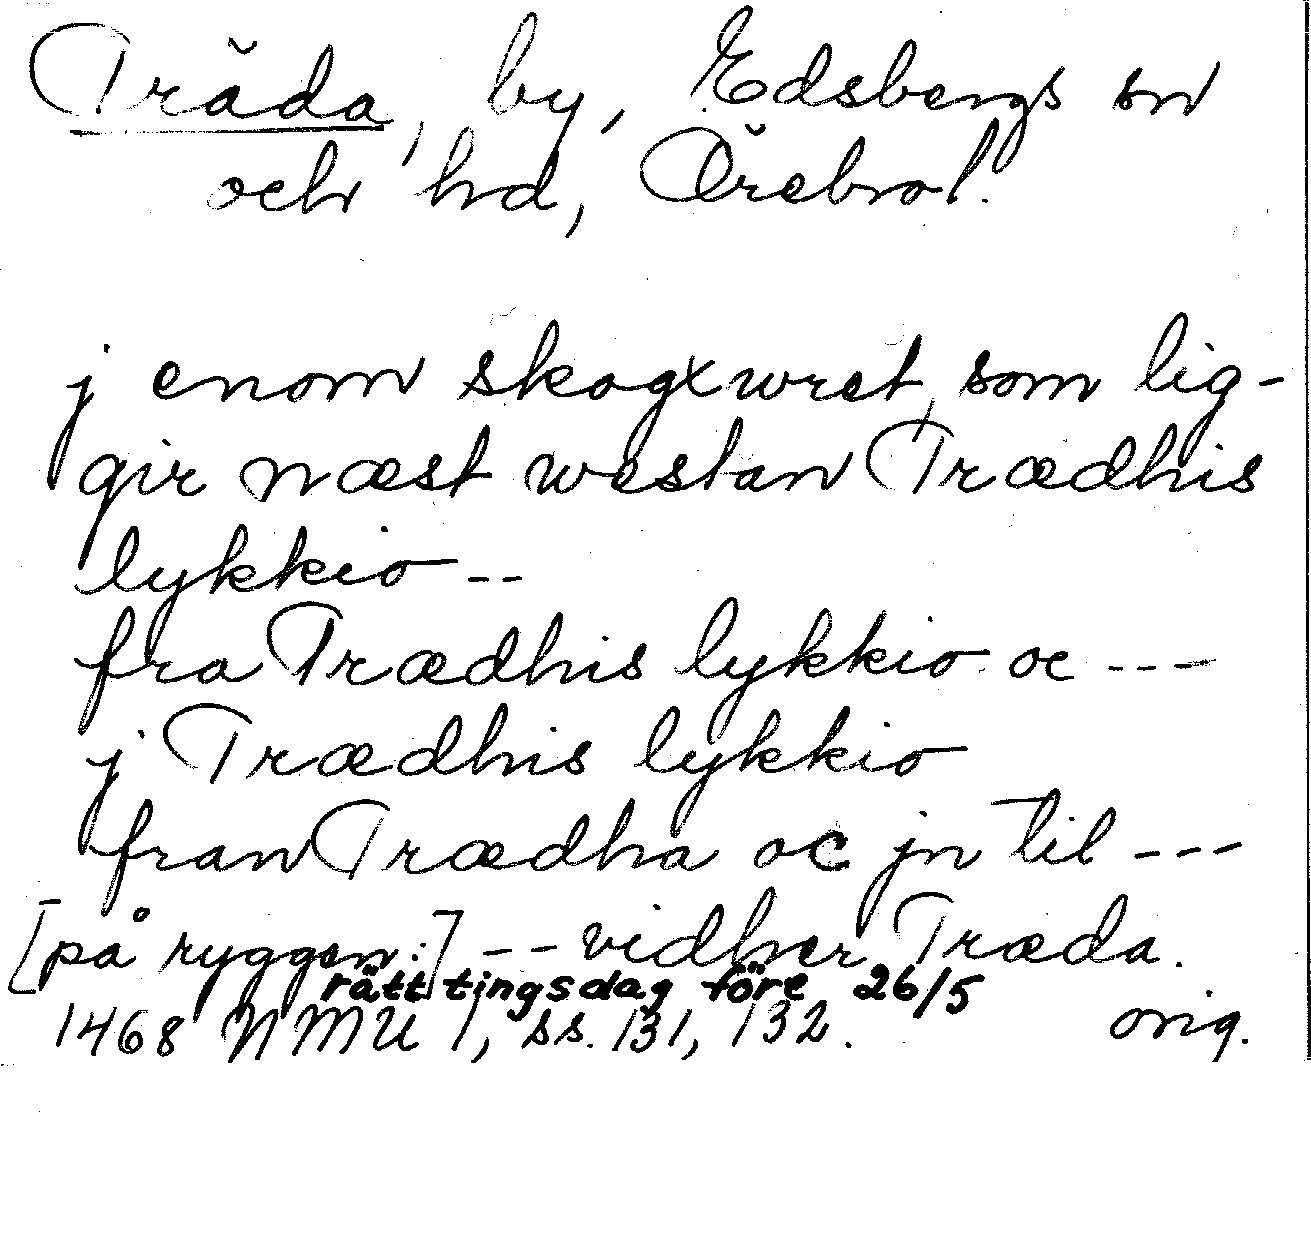 Träda, by, Edsbergs sn
och hd, Örebro l.
j enom skogxwret, som lig-
gir næst westan Trædhis
lykkio --
fra Trædhis lykkio oc ---
j Trædhis lykkio
fran Trædha oc jn til ---
[på ryggen:] -- vidher Træda.
rätt tingsdag före 26/5
1468 NMU 1, ss. 131, 132. orig.